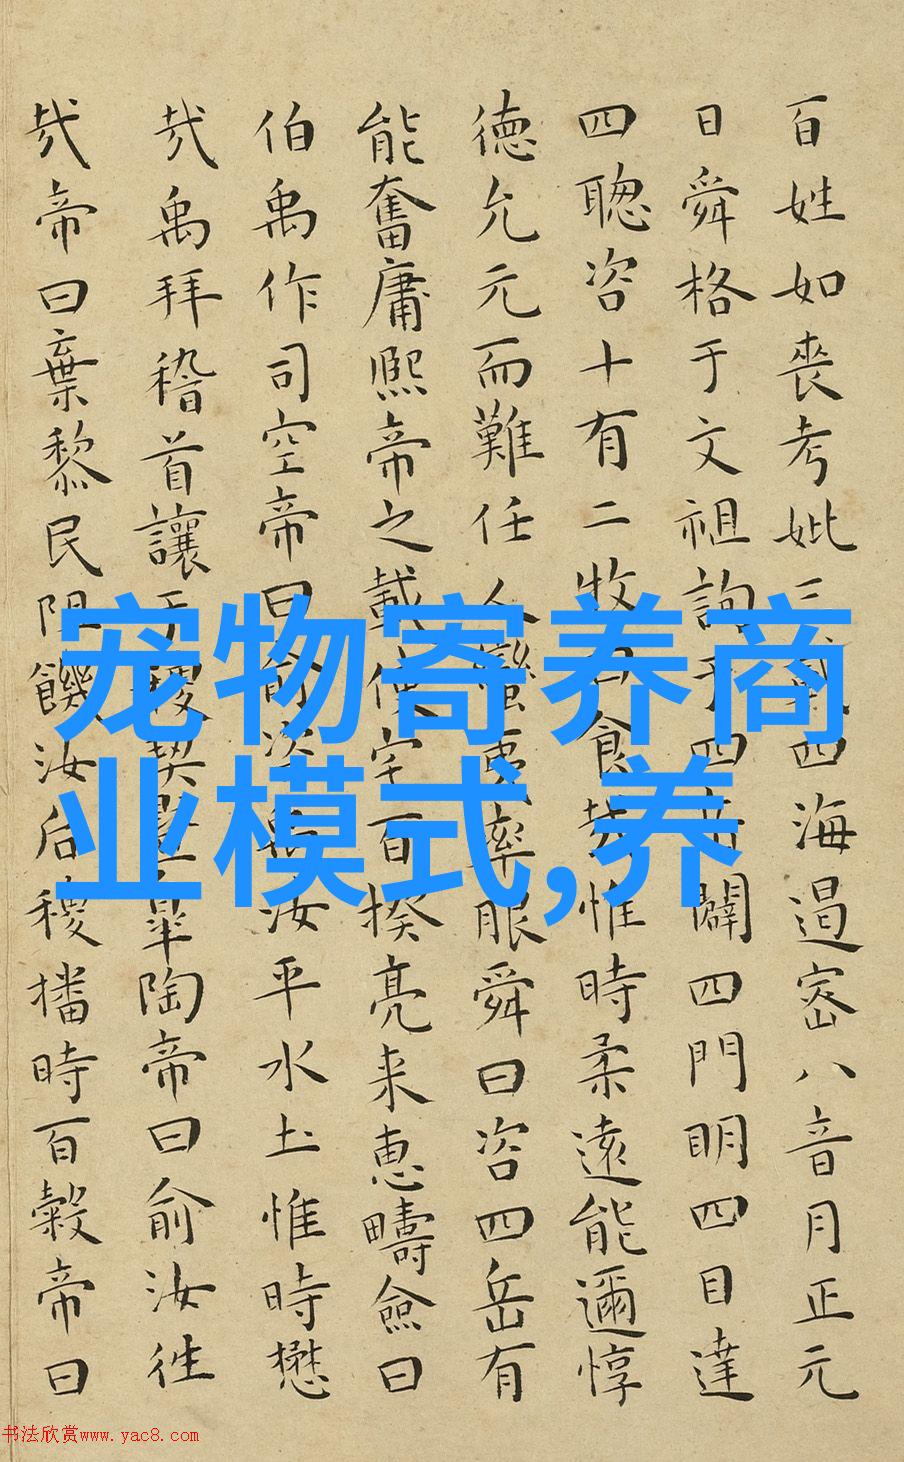 百姓如喪考妣三載四海遏密八音月正元
日舜格于文祖詢于四岳闢四門明四目達
四聡咨十有二牧曰食哉惟時柔遠能邇惇
徳允元而難任人蠻夷率服舜曰咨四岳有
能奮庸熙帝之載使宅百揆亮来恵疇僉曰
伯禹作司空帝曰俞咨禹汝平水土惟時懋
哉禹拜稽首讓于稷契暨皐陶帝曰俞汝往
哉帝曰棄黎民阻饑汝后稷播時百穀帝曰
宠物寄养商
业模式,养
书法欣赏www.yac8.com